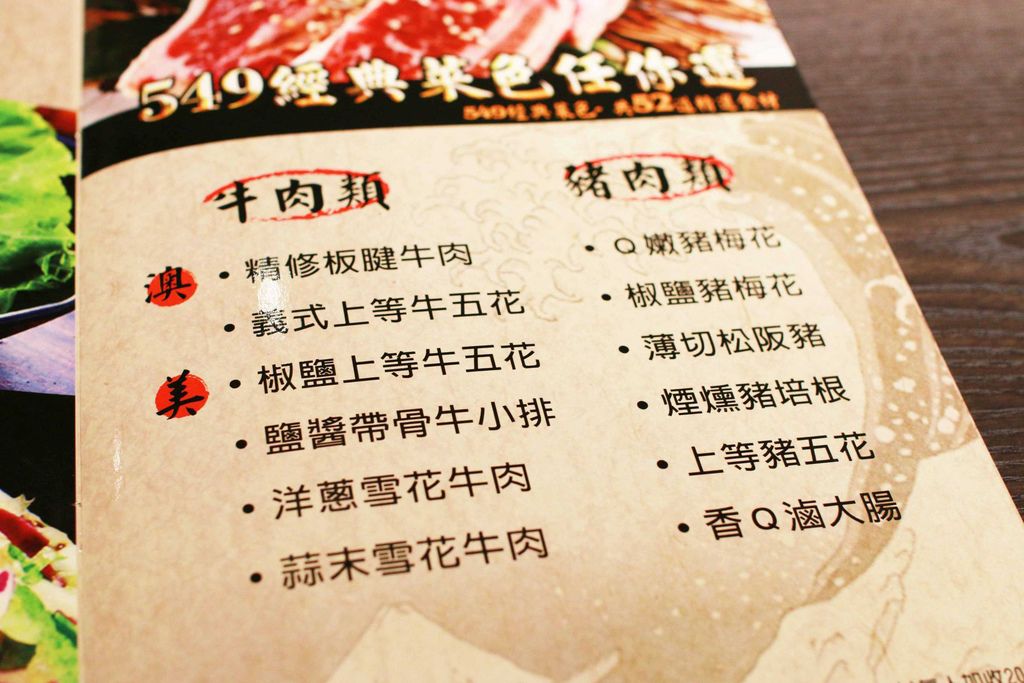 549經典菜色任你選
549經典菜色，共52道精選食材
牛肉類
澳
• 精修板腱牛肉
• 義式上等牛五花
美
• 椒鹽上等牛五花
• 鹽醬帶骨牛小排
• 洋蔥雪花牛肉
• 蒜末雪花牛肉
豬肉類
• Q嫩豬梅花
• 椒鹽豬梅花
• 薄切松阪豬
• 煙燻豬培根
• 上等豬五花
• 香Q滷大腸
人加收20